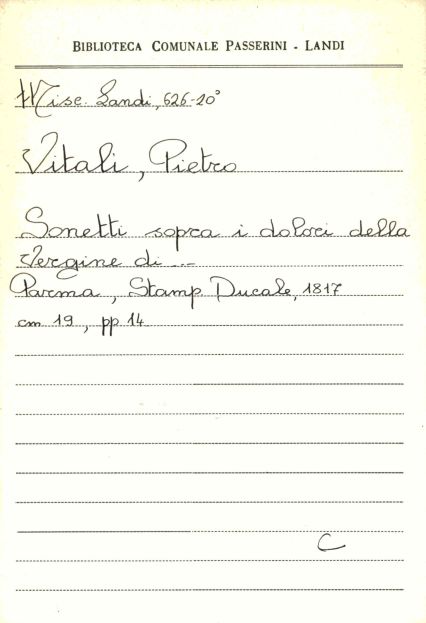 BIBLIOTECA COMUNALE PASSERINI - LANDI
Misc. Landi, 626-10°
Vitali, Pietro
Sonetti sopra i dolori della
Vergine di ...
Parma, Stamp. Ducale, 1817
cm 19, pp 14
C